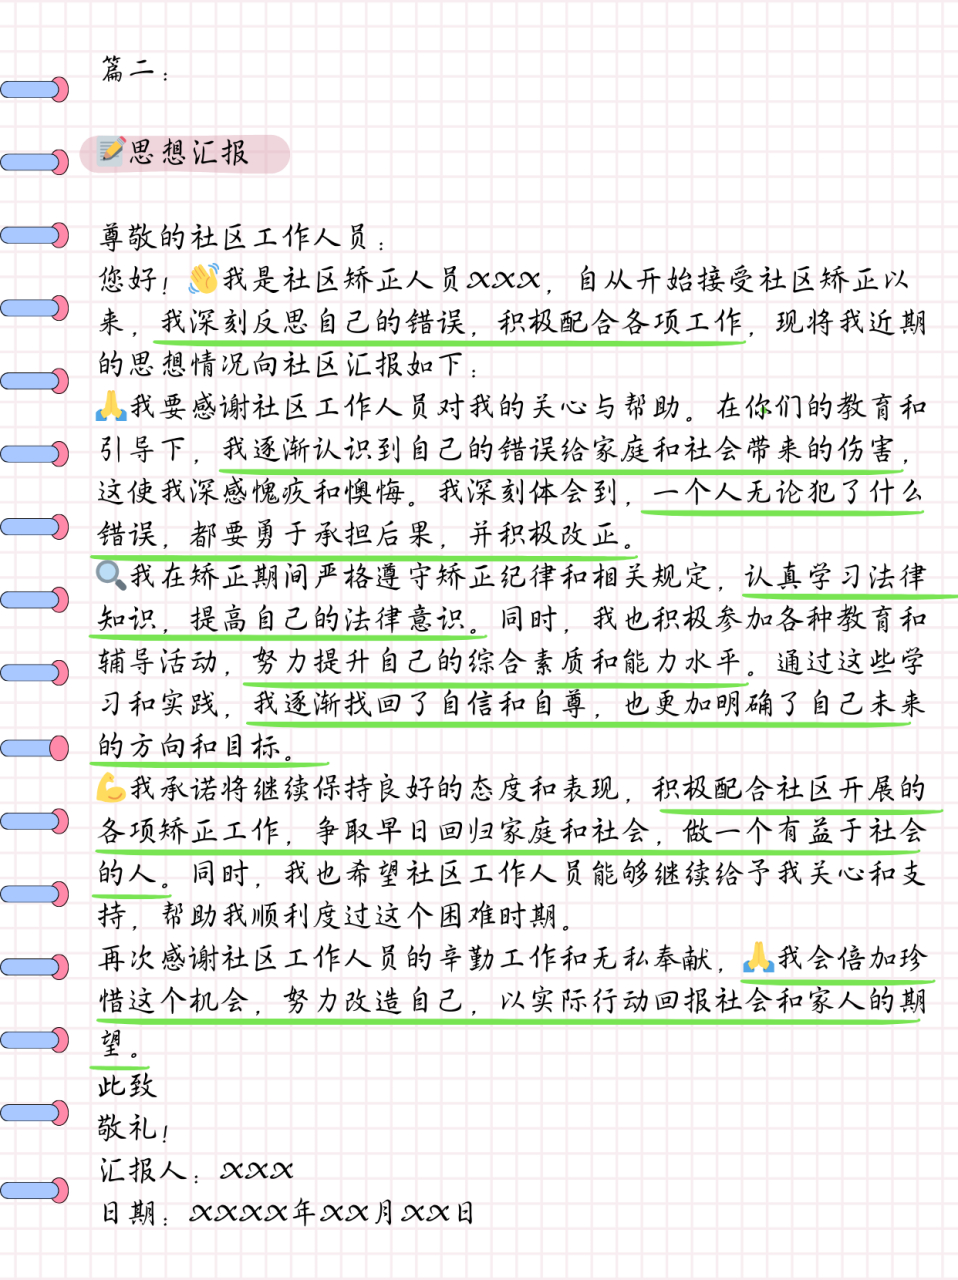 篇二：
📝思想汇报
尊敬的社区工作人员：
您好！👋我是社区矫正人员XXX，自从开始接受社区矫正以
来，我深刻反思自己的错误，积极配合各项工作，现将我近期
的思想情况向社区汇报如下：
🙏我要感谢社区工作人员对我的关心与帮助。在你们的教育和
引导下，我逐渐认识到自己的错误给家庭和社会带来的伤害，
这使我深感愧疚和懊悔。我深刻体会到，一个人无论犯了什么
错误，都要勇于承担后果，并积极改正。
🔍我在矫正期间严格遵守矫正纪律和相关规定，认真学习法律
知识，提高自己的法律意识。同时，我也积极参加各种教育和
辅导活动，努力提升自己的综合素质和能力水平。通过这些学
习和实践，我逐渐找回了自信和自尊，也更加明确了自己未来
的方向和目标。
💪我承诺将继续保持良好的态度和表现，积极配合社区开展的
各项矫正工作，争取早日回归家庭和社会，做一个有益于社会
的人。同时，我也希望社区工作人员能够继续给予我关心和支
持，帮助我顺利度过这个困难时期。
再次感谢社区工作人员的辛勤工作和无私奉献，🙏我会倍加珍
惜这个机会，努力改造自己，以实际行动回报社会和家人的期
望。
此致
敬礼！
汇报人：XXX
日期：XXXX年XX月XX日